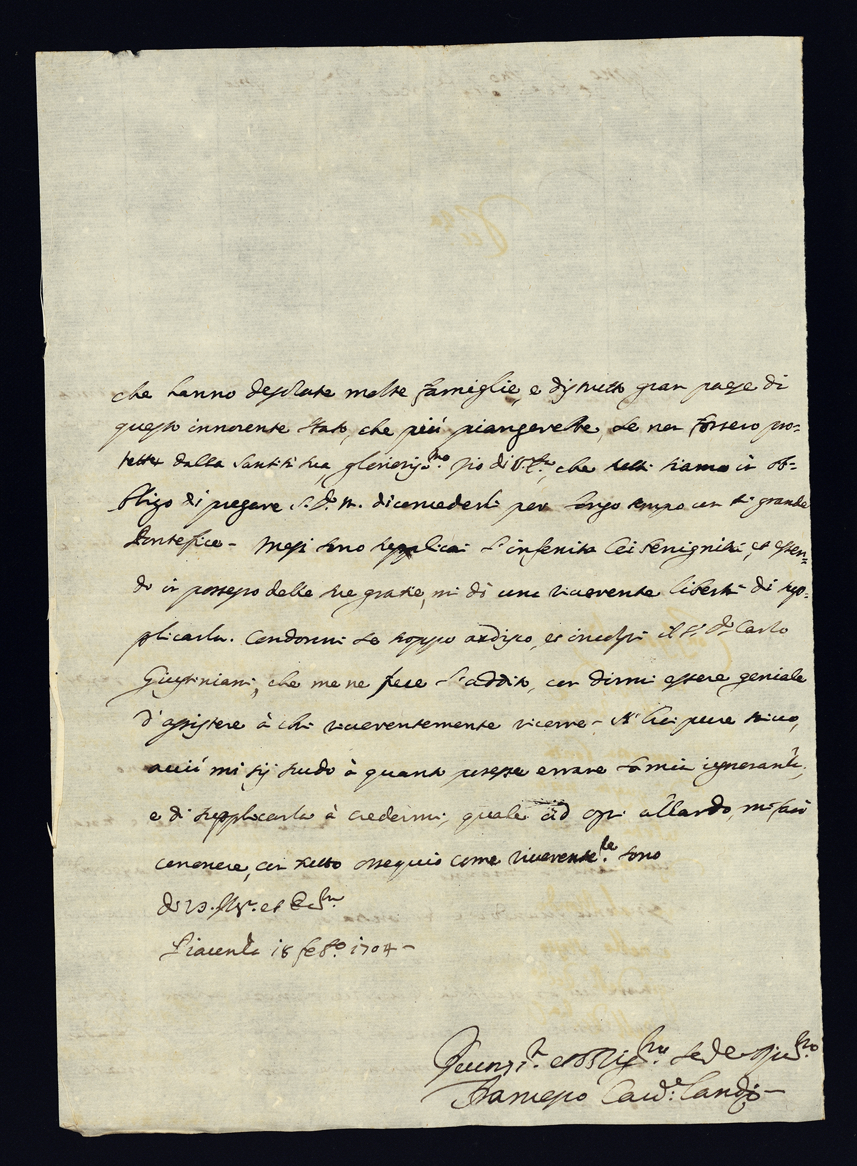 che hanno desolate molte famiglie, e distrutto gran paese di
questo innocente stato, che più piangerebbe, se non fossero pro=
tette dalla Santità sua, zio di V. che tutti siamo in ob=
bligo di pregare S. D. M. di concederli per longo tempo un sì grande
Pontefice – sono l'infinita Lei benignità, et essen=
do in possesso delle sue grazie, mi dò una riverente libertà di sup=
plicarla. Condonni le troppo ardisco, et incolpi il Sr. Dn. Carlo
Giustiniani, che me ne fece l'addito, con dirmi essere geniale
d'assistere à chi riverentemente ricorre – Lei pure
acciò mi sij scudo à quanto potesse errare la mia ignoranza,
e di supplicarla à credermi, quale ad ogni
con tutto ossequio come riverente. sono
di V.
Piacenza 18 febo. 1704 –
Card: Landi –